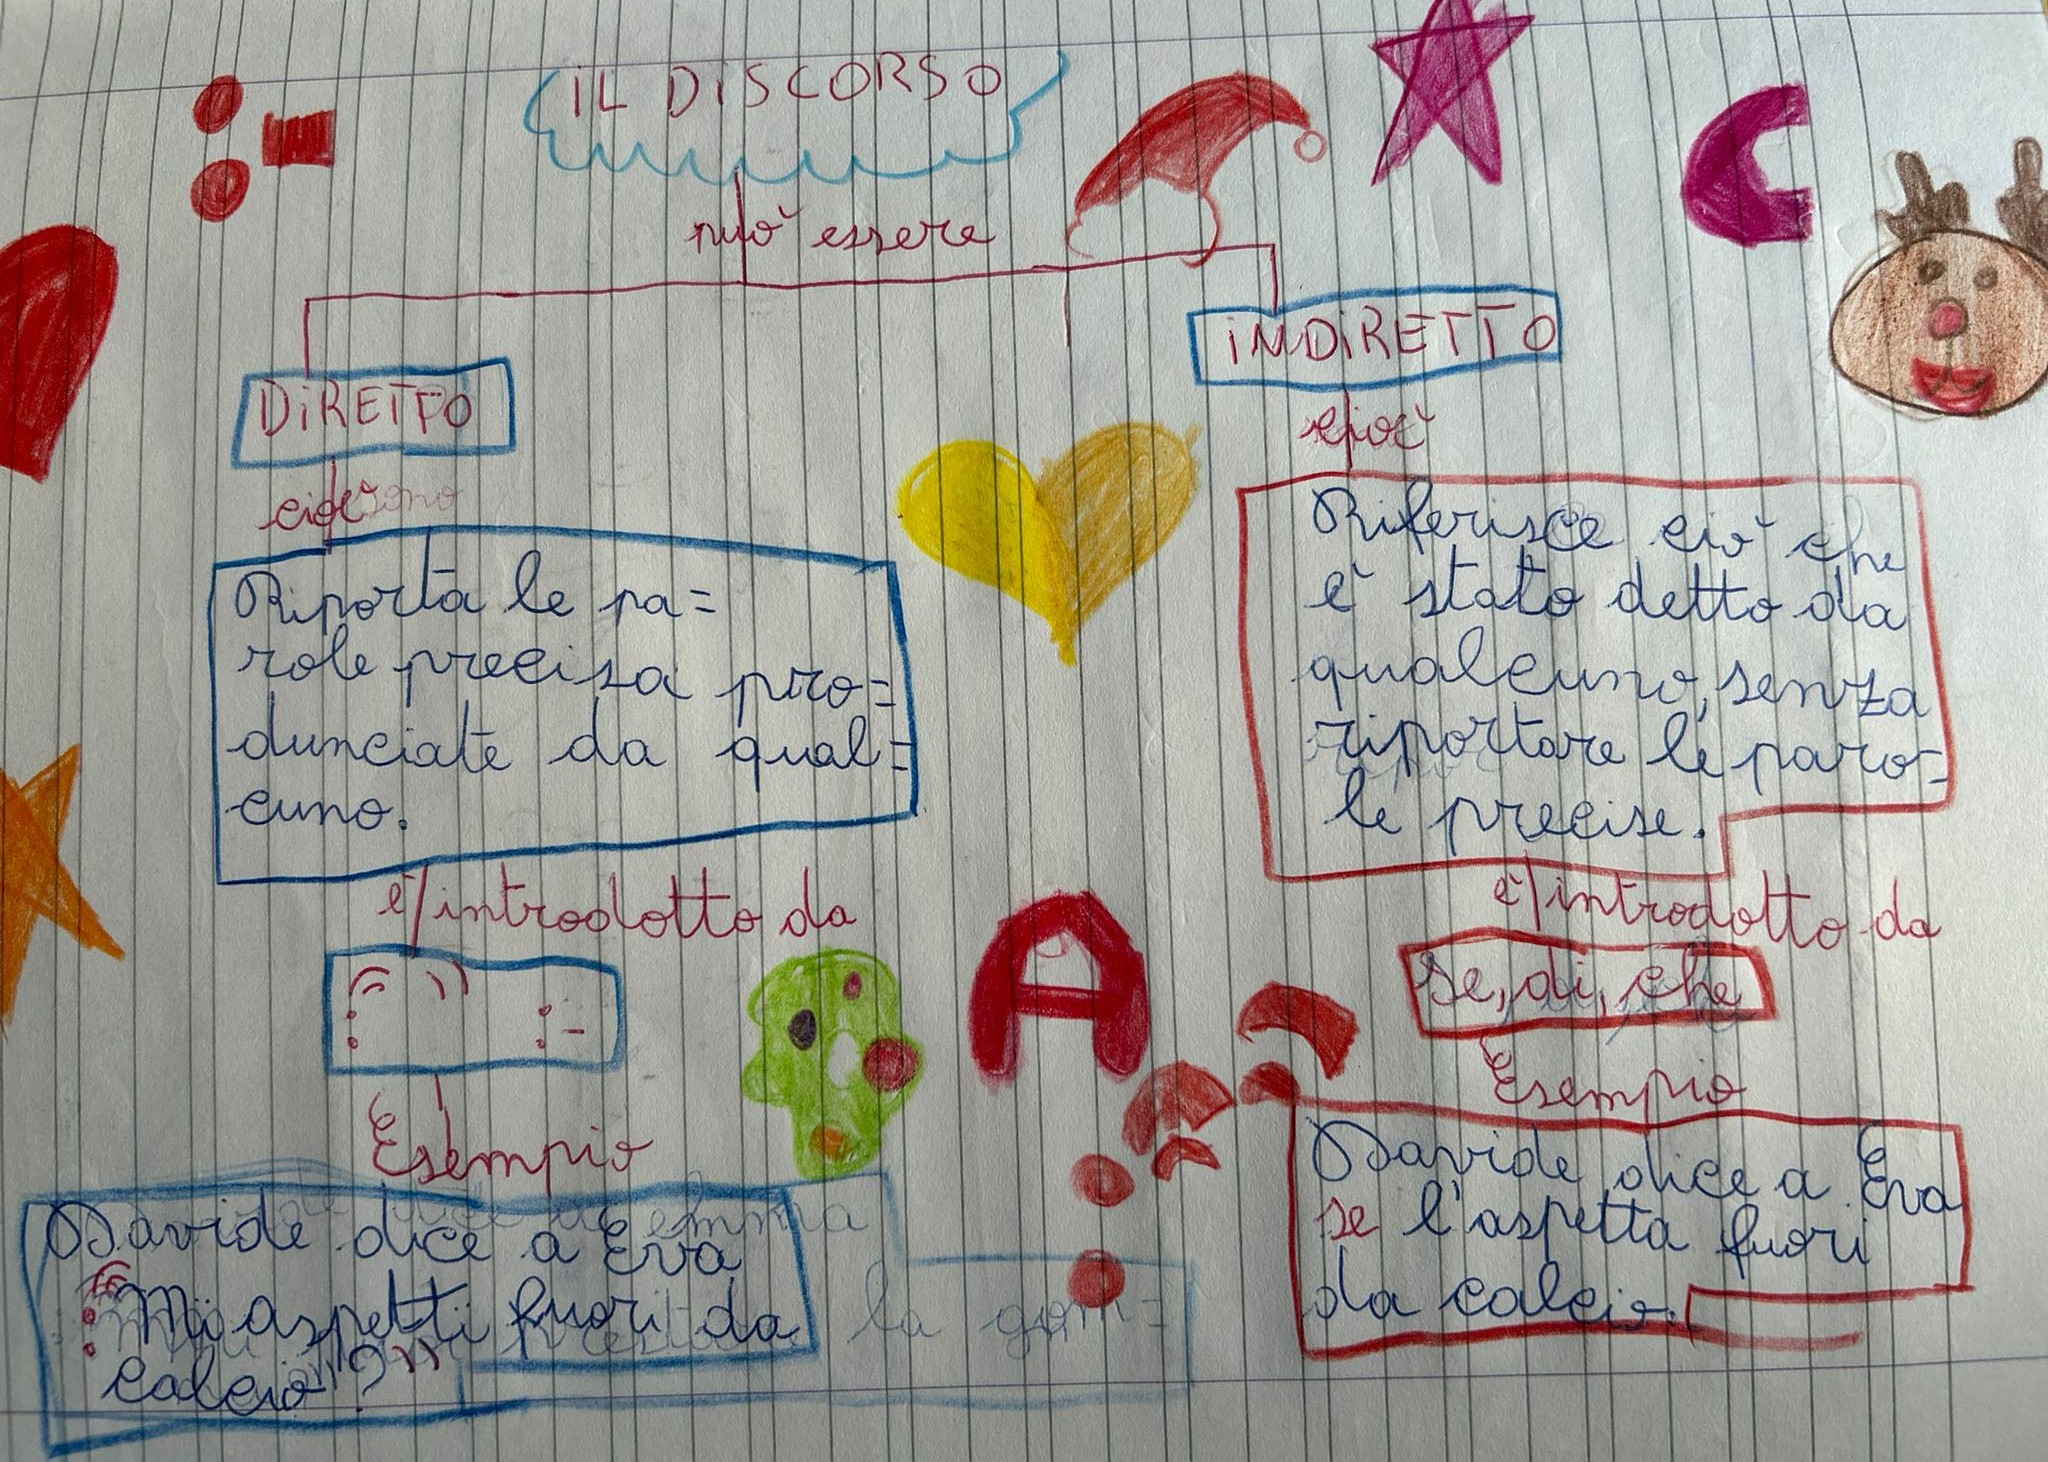 iL DiSCORSO
può essere
DiRETTO
cioè
Riporta le pa=
role precisa pro=
dunciate da qual=
cuno.
è introdotto da
:“ ” :-
Esempio
Davide dice a Eva
:“Mi aspetti fuori da
calcio"?”
iNDiRETTO
cioè
Riferisce ciò che
è stato detto da
qualcuno, senza
riportare le paro=
le precise.
è introdotto da
se, di, che
Esempio
Davide dice a Eva
se l'aspetta fuori
da calcio.